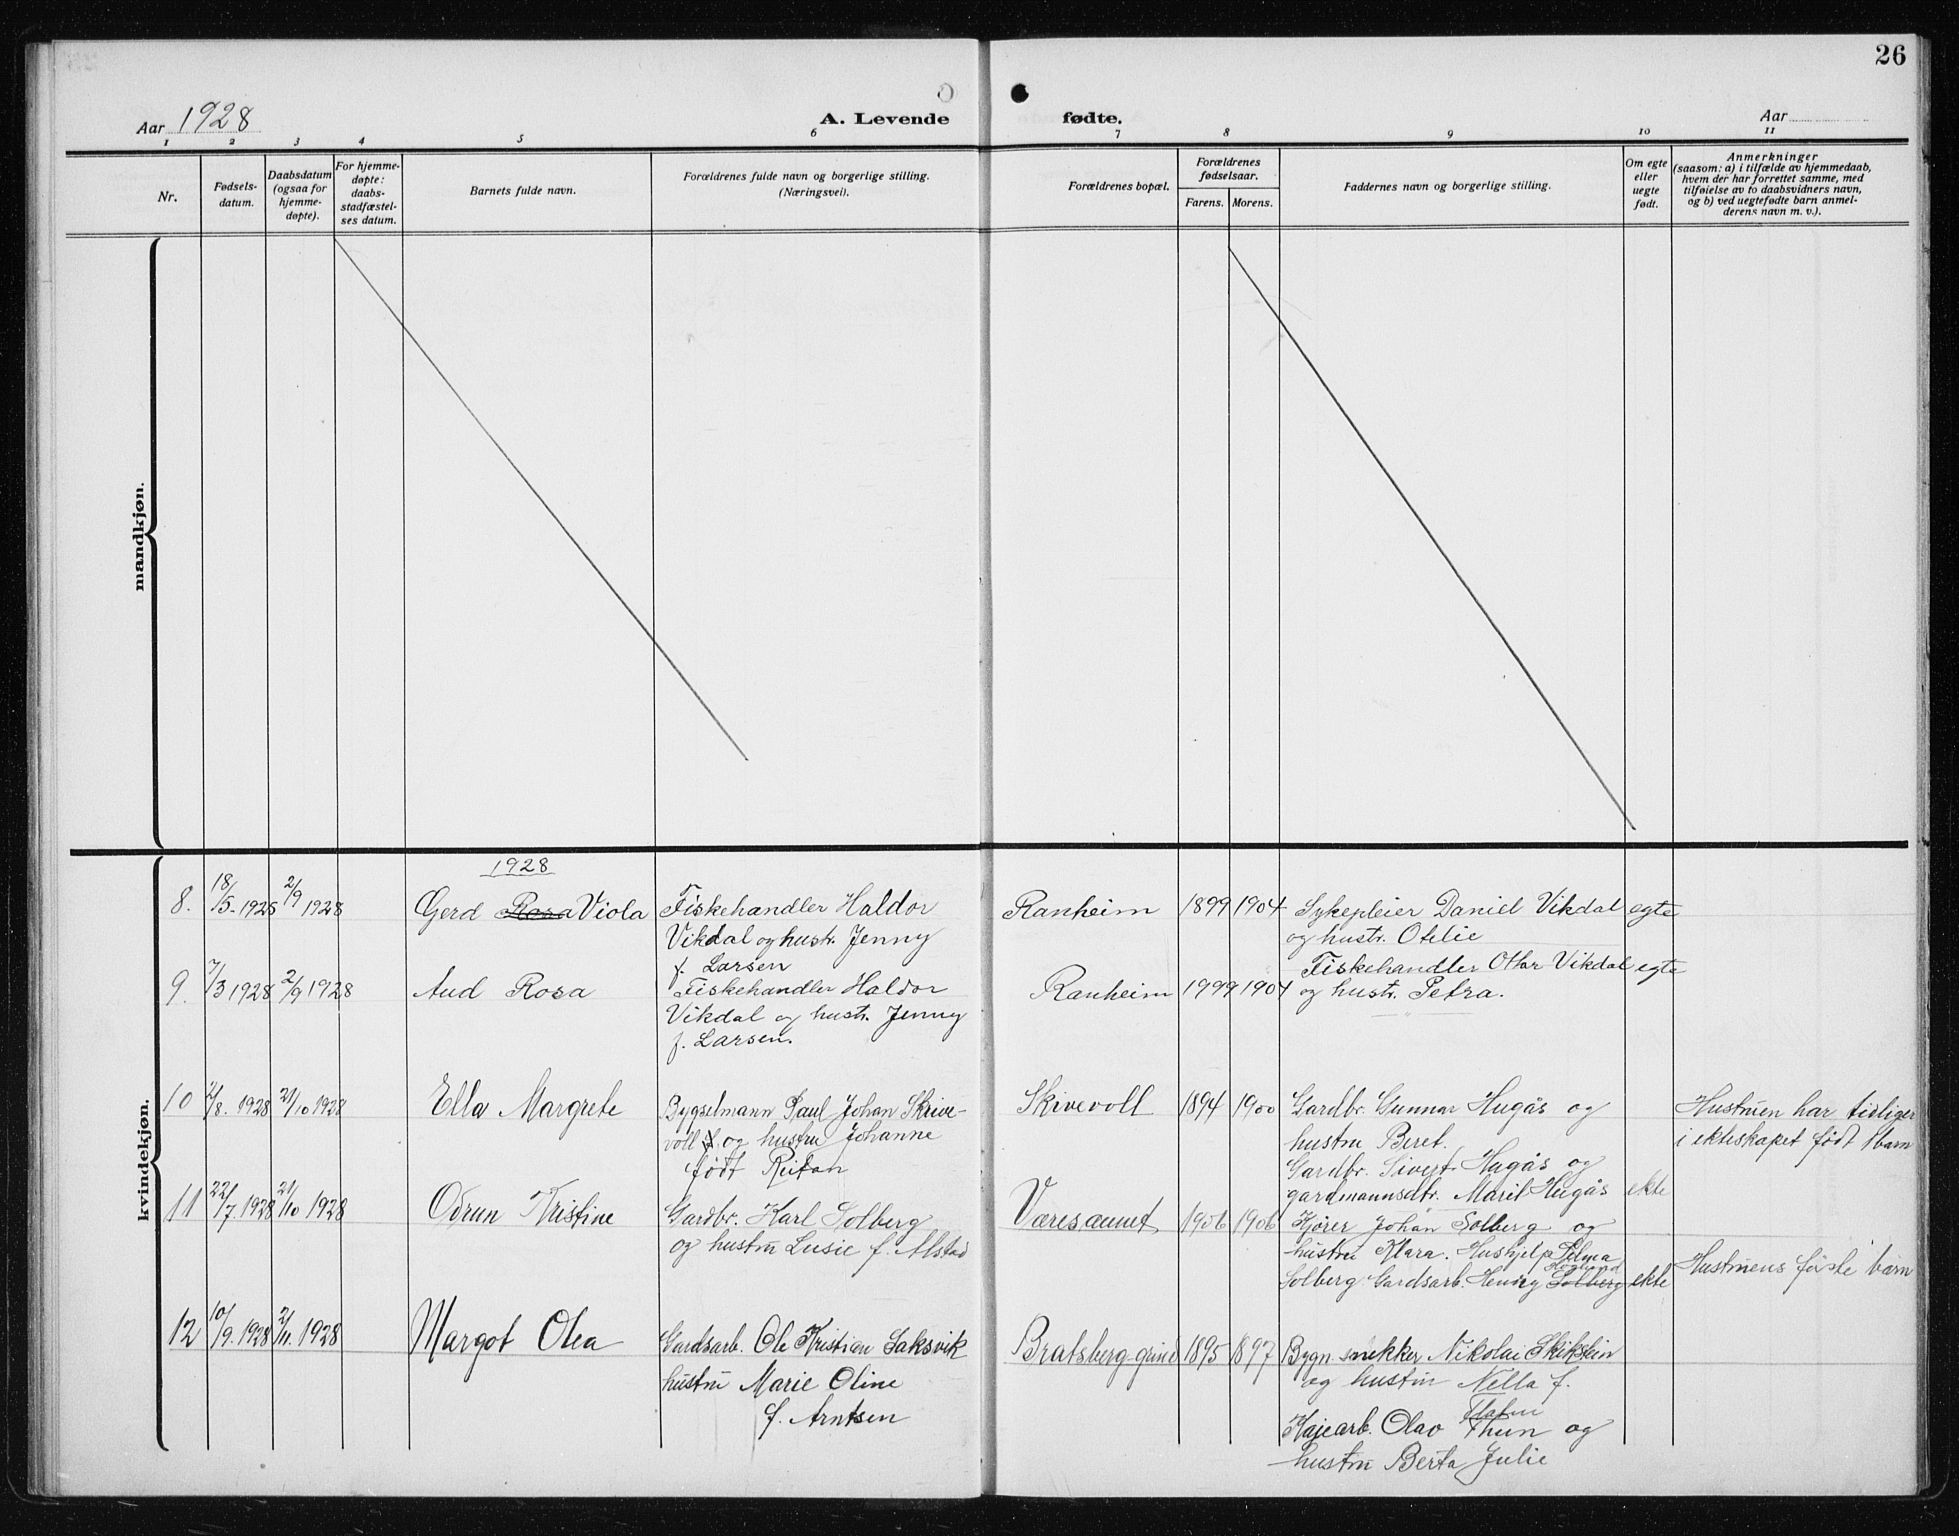 26
Aar 1928
A. Levende
fødte.
Aar
1 2 3 4 5 6 7 8 9 10 11
Nr.
Fødsels-
datum.
Daabsdatum
(ogsaa for
hjemme-
døpte).
For hjemme-
døpte:
daabs-
stadfæstel-
ses datum.
Barnets fulde navn.
Forældrenes fulde navn og borgerlige stilling.
(Næringsvei).
Forældrenes bopæl.
Forældrenes
fødselsaar.
Farens. Morens.
Faddernes navn og borgerlige stilling.
Om egte
eller
uegte
født.
Anmerkninger
(saasom: a) i tilfælde av hjemmedaab,
hvem der har forrettet samme, med
tilføielse av to daabsvidners navn,
og b) ved uegtefødte barn anmel-
derens navn m. v.).
mandkjøn.
kvindekjøn.
1928
8. 18/5-1926 2/9 1928 Gerd Rosa Viola Fiskehandler Haldor Ranheim 1899 1904 Sykepleier Daniel Vikdal egte
Vikdal og hustr. Jenny og hustr. Otelie
f. Larsen
9. 7/3 1928 2/9 1928 Aud Rosa Fiskehandler Haldor Ranheim 1999 1904 Fiskehandler Ottar Vikdal egte
Vikdal og hustr. Jenny og hustr. Petra.
f. Larsen.
10 2/8. 1928 21/10 1928 Ella Margrete Bygselmann Paul Johan Skive- Skivevoll 1894 1900 Gardbr. Gunnar Hugås og Hustruen har tidliger
voll og hustru Johanne hustru Beret. i ekteskapet født 1 barn
født Reitan Gardbr. Sivert Hugås og
gardmannsdtr. Marit Hugås ekte
11 22/7 1928 21/10 1928 Odrun Kristine Gardbr. Karl Solberg Væresaunet 1906 1906 Kjører Johan Solberg og
og hustru Lusie f. Alstad hustru Klara. Hushjelp
Solberg. Gardsarb. Henry Solberg ekte Hustruens første barn
12 10/9. 1928 2/11. 1928 Margot Olea Gardsarb. Ole Kristian Saksvik Bratsberg-grind 1895 1897 Bygn. snekker Nikolai Skikstein
hustru Marie Oline og hustru Nella f.
f. Arntsen
Kaiearb. Olav Thun og
hustru Berta Julie